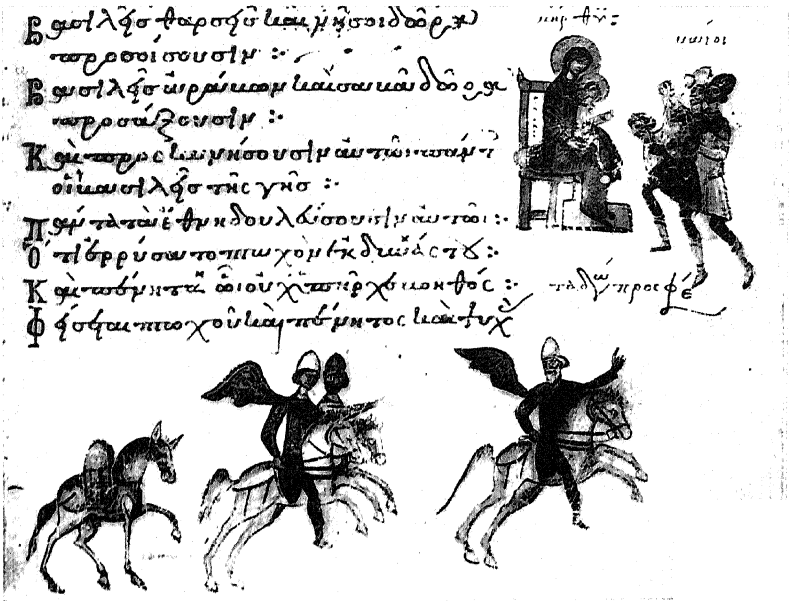 Βασιλῆς θαρσῆς καὶ νῆσοι δῶρα
προσοίσουσιν :·
Βασιλῆς ἀράβων καὶ σαβᾶ δῶρα
προσάξουσιν :·
Καὶ προσκυνήσουσιν αὐτῶι πάντ
οἱ βασιλῆς τῆς γῆς :·
Πάντα τὰ ἔθνη δουλεύσουσιν αὐτῶι :·
Ὅτι ἐρρύσατο πτωχὸν ἐκ δυνάστου :·
Καὶ πένητα ὧι οὐχ ὑπῆρχε βοηθός :·
Φείσεται πτωχοῦ καὶ πένητος καὶ ψυχ
μηρ θυ :
μάγοι
τὰ δῶ προσφέ